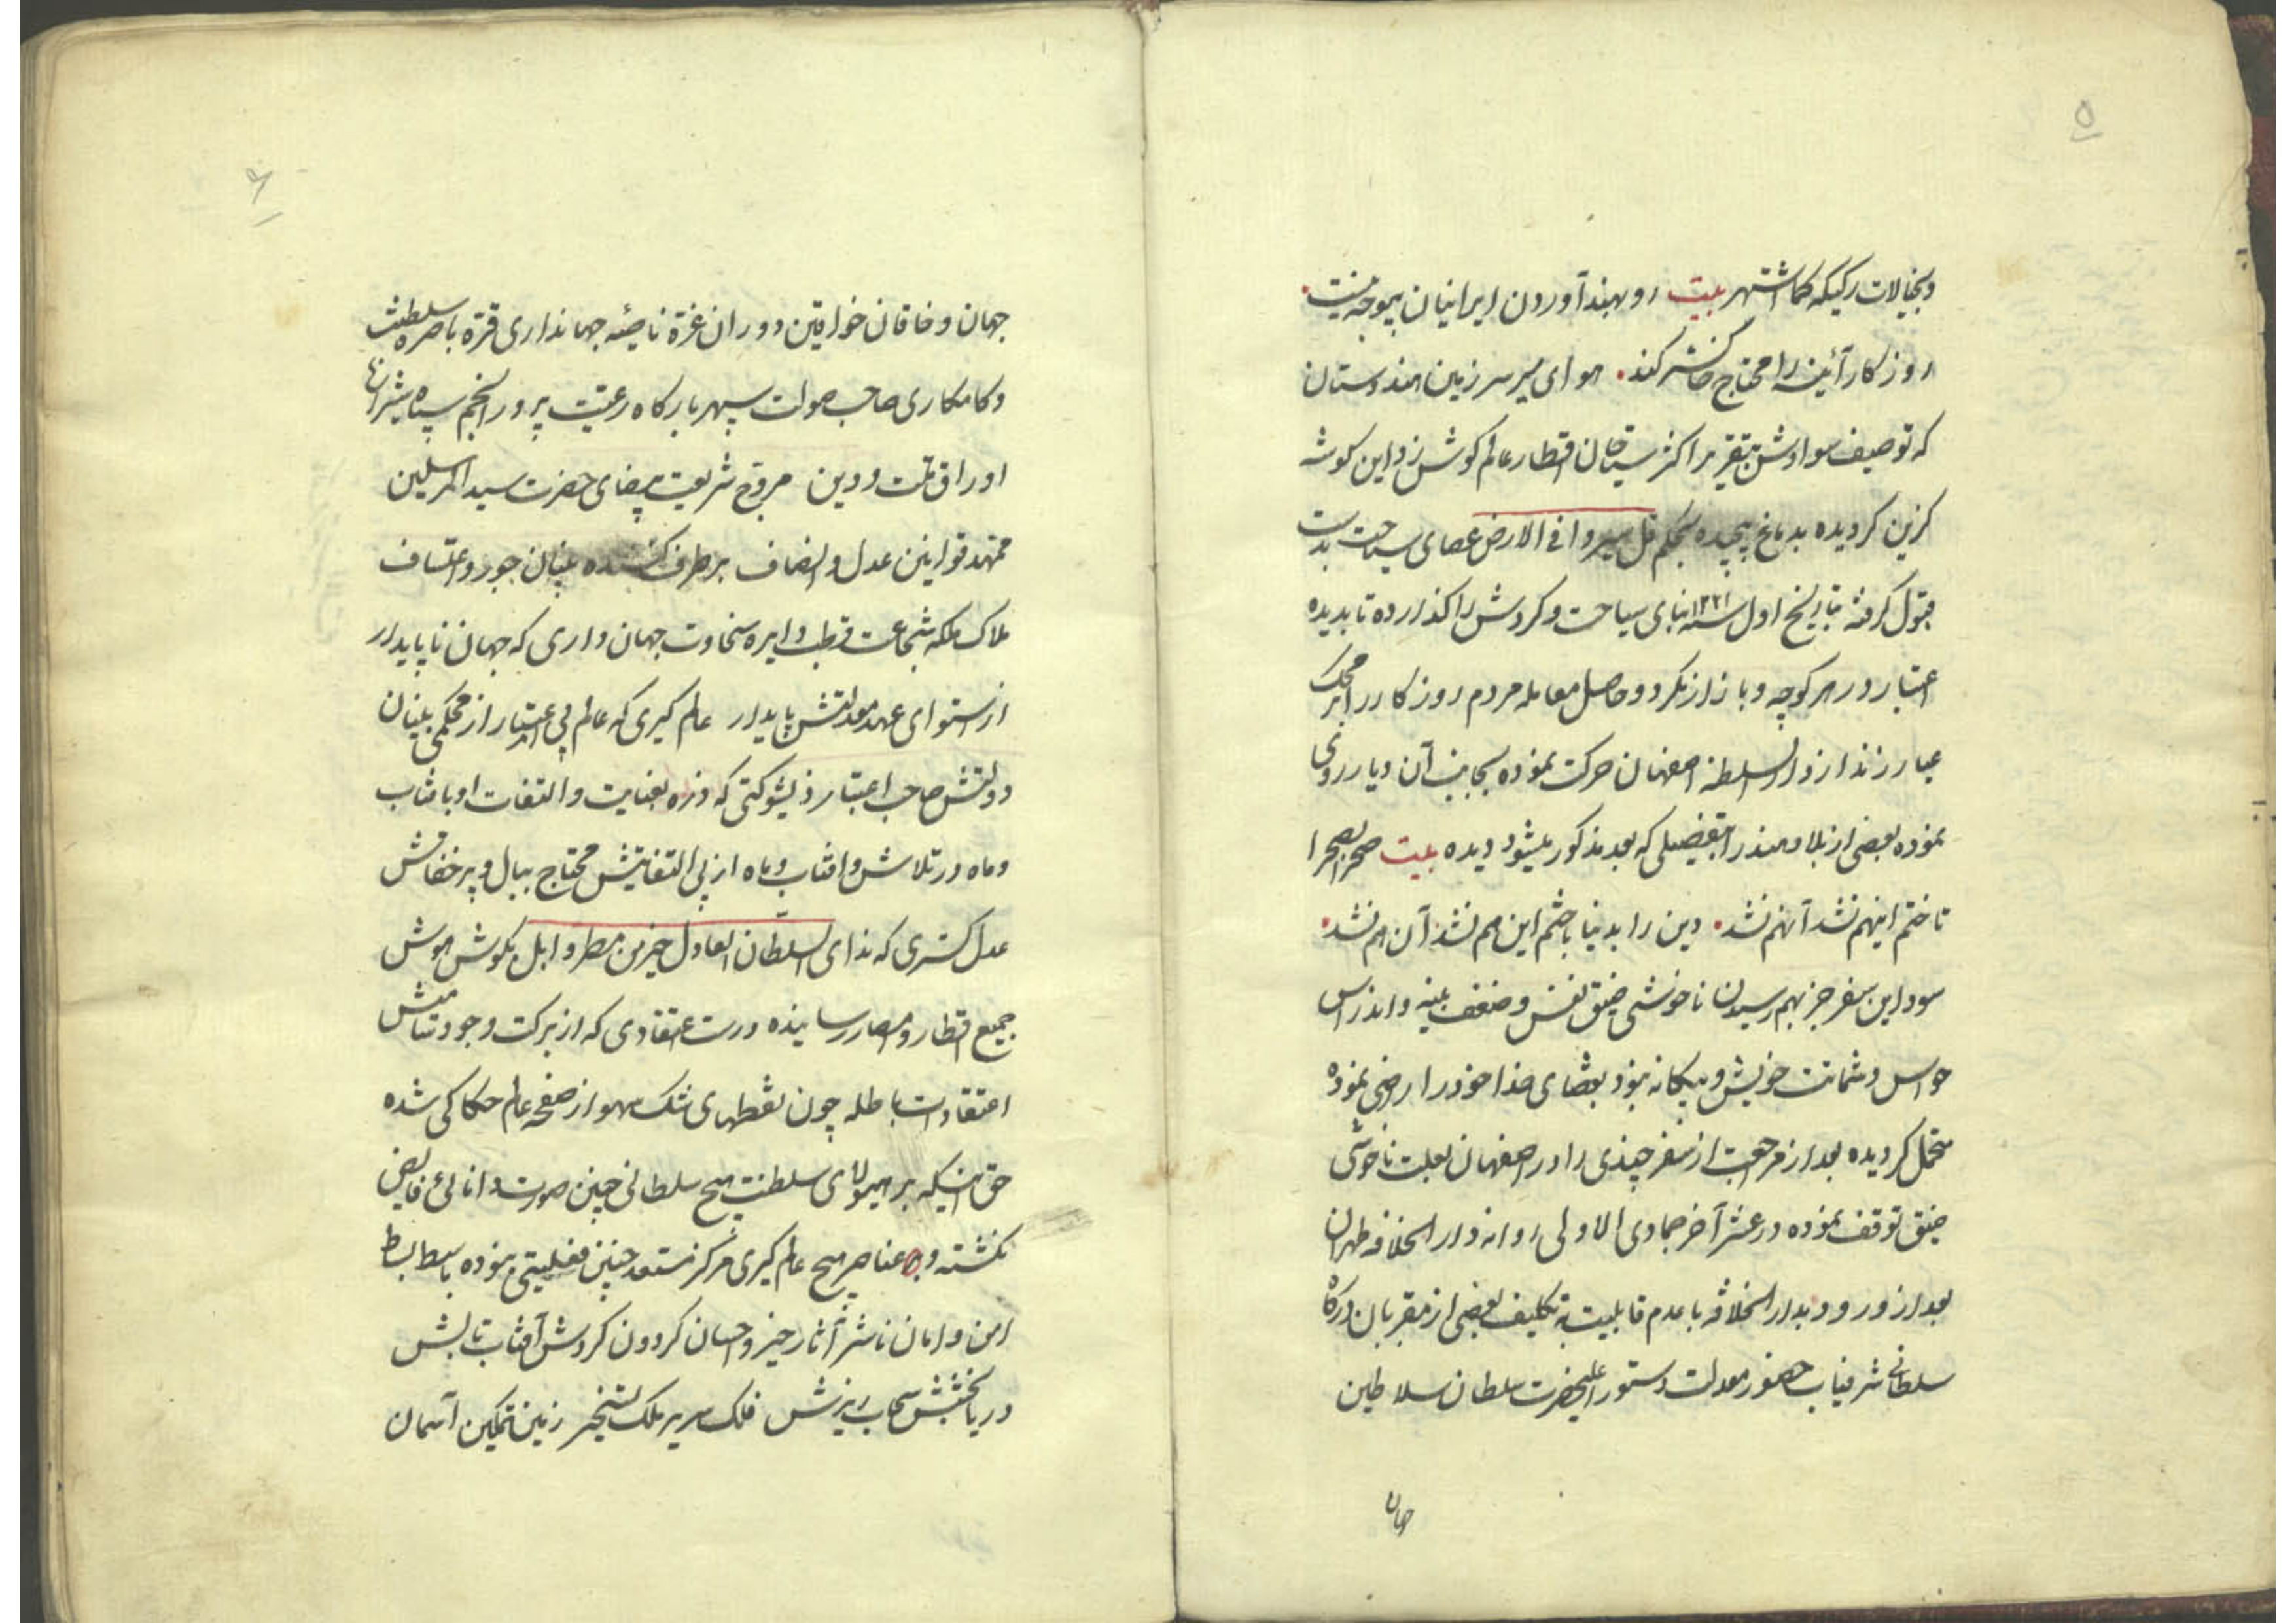 ۵
وبخیالات رکیکه کما اشتهر بیت رو بهند آوردن ایرانیان بیوجه نیست
روزکار آئینه را محتاج خاکستر کند هوای سیر سرزمین هندوستان
که توصیف سوادش بتقریر اکثر سیاحان اقطار عالم کوش زد این کوشه
کزین کردیده بدماغ پیچیده بحکم قل سیروا فی الارض عصای سیاحت بدست
قبول کرفته بتاریخ اول سنه ۱۲۲۱ بنای سیاحت وکردش را کذارده تا بدیده
اعتبار در هر کوچه و بازار نکرد و حاصل معامله مردم روزکار را بر محک
عیار زند از دار السلطنه اصفهان حرکت نموده بجانب آن دیار روی
نموده بعضی از بلاد هند را بتفضیلی که بعد مذکور میشود دیده بیت صحرا بصحرا
تاختم اینهم نشد آنهم نشد دین را بدنیا باختم این هم نشد آن هم نشد
سود این سفر جز بهم رسیدن ناخوشی ضیق نفس و ضعف بنیه و اندراس
حواس و شماتت خویش و بیکانه نبود بقضای خدا خود را راضی نموده
متحمل کردیده بعد از مراجعت از سفر چندی را در اصفهان بعلت ناخوشی
ضیق توقف نموده در عشر آخر جمادی الاولی روانه دار الخلافه طهران
بعد از ورود بدار الخلافه با عدم قابلیت بتکلیف بعضی از مقربان درکاه
سلطانی شرفیاب حضور معدلت دستور اعلیحضرت سلطان سلاطین
جهان
۶
جهان و خاقان خواقین دوران غرة ناصیه جهانداری قرة باصره سلطنت
وکامکاری صاحب صولت سپهر بارکاه رعیت پرور انجم سپاه شیرازه
اوراق ملت و دین مروج شریعت بیضای حضرت سید المرسلین
ممهد قوانین عدل و انصاف برطرف کننده بنیان جور و اعتساف
ملاک ملکه شجاعت قطب دایره سخاوت جهان داری که جهان ناپایدار
از استوای عهد معدلتش پایدار عالم کیری که عالم بی اعتبار از محکمی بنیان
دولتش صاحب اعتبار ذیشوکتی که ذره بعنایت و التفات او با فتاب
و ماه در تلاش و افتاب و ماه از بی التفاتیش محتاج ببال و پر خفاش
عدل کستری که ندای السلطان العادل خیر من مطر وابل بکوش هوش
جمیع اقطار و امصار رسانیده درست اعتقادی که از برکت وجود تمامیش
اعتقادات باطله چون نقطهای شک سهو از صفحه عالم حکاکی شده
حق اینکه بر هیولای سلطنت هیچ سلطانی چنین صورت دانائی فایض
نکشته و عناصر هیچ عالم کیری مرکز مستعد چنین فعلیتی نبوده باسط بساط
امن و امان ناشر آثار خیر و احسان کردون کردش آفتاب تابش
دریا بخشش سحاب ریزش فلک سریر ملک تسخیر زمین تمکین آسمان